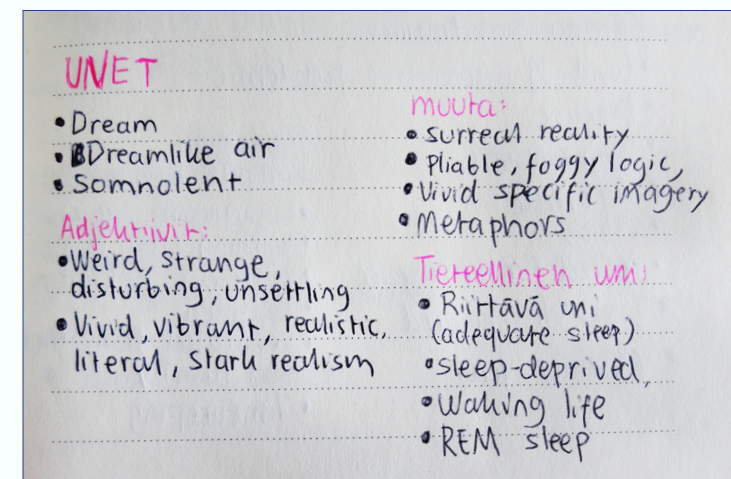 UNET
• Dream
• Dreamlike air
• Somnolent
Adjektiivit:
• Weird, strange,
disturbing, unsettling
• Vivid, vibrant, realistic,
literal, stark realism
muuta:
• surreal reality
• Pliable, foggy logic,
• Vivid specific imagery
• Metaphors
Tieteellinen uni:
• Riittävä uni
(adequate sleep)
• sleep-deprived,
• Waking life
• REM sleep